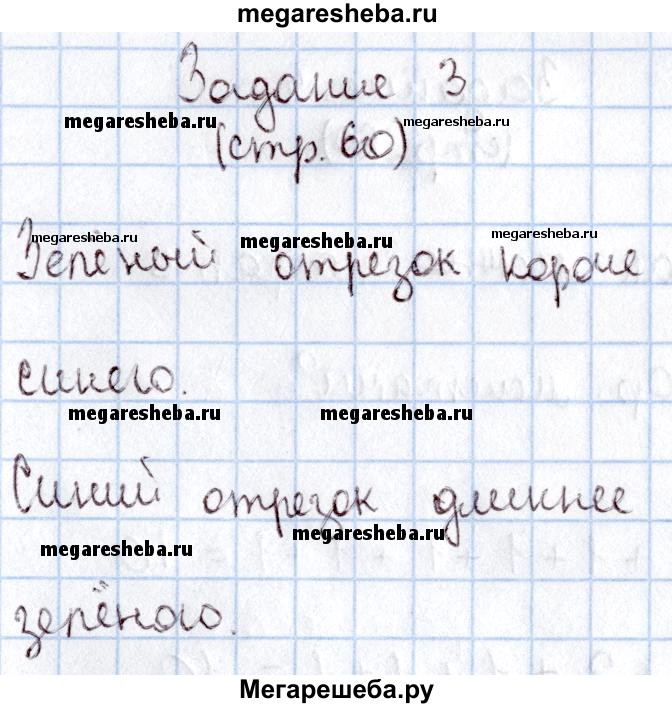 megaresheba.ru
Задание 3
megaresheba.ru megaresheba.ru
(стр. 60)
megaresheba.ru megaresheba.ru megaresheba.ru
Зелёный отрезок короче
синего.
megaresheba.ru megaresheba.ru
Синий отрезок длиннее
megaresheba.ru megaresheba.ru
зелёного.
Мегарешеба.ру